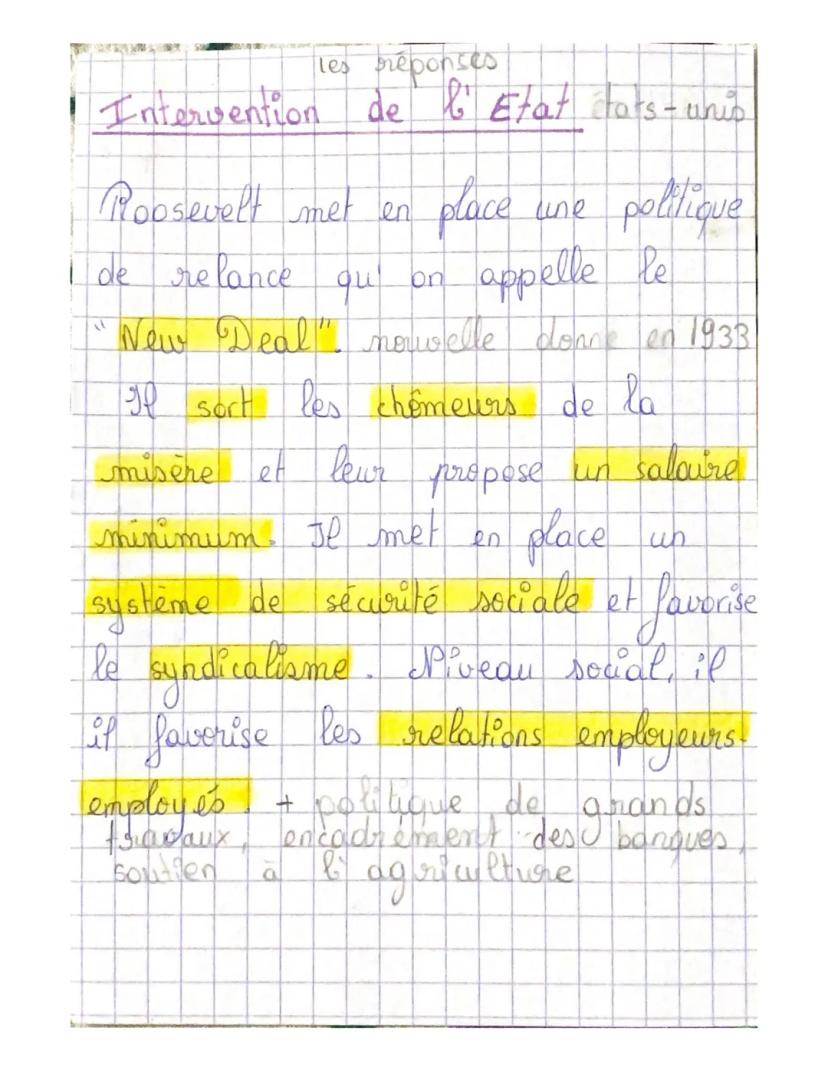 les réponses
Intervention de l'Etat états-unis
Roosevelt met en place une politique
de relance qu'on appelle le
"New Deal". nouvelle donne en 1933
Il sort les chômeurs de la
misère et leur propose un salaire
minimum. Il met en place un
système de sécurité sociale et favorise
le syndicalisme. Niveau social, il
il favorise les relations employeurs-
employés. + politique de grands
travaux, encadrement des banques,
soutien à l'agriculture